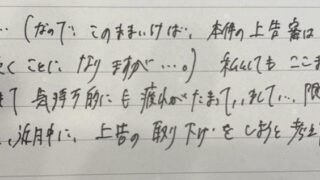 …(なので、このままいけば、本件の上告審は
くことになりますが…。) 私としてもここま
て 気持ち的にも疲れがたまって、、まして…限
、近月中に、上告の取り下げをしようと考え